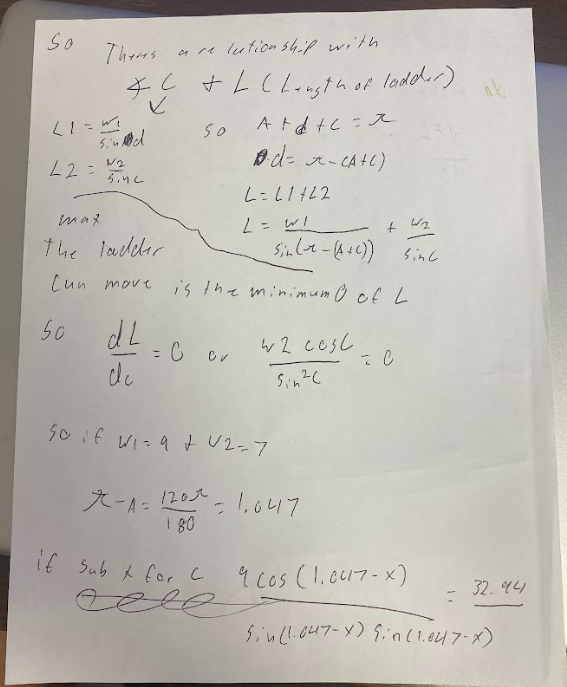 So Theres a relutionship with
∡ C + L (Length of ladder)
L1 = w1 / sin d
so A + d + C = π
L2 = w2 / sin c
d = π - (A + C)
L = L1 + L2
max
L = w1 / sin(π - (A+C)) + w2 / sin C
the ladder
Cun move is the minimum of L
So dL / dc = 0 or w2 cosC / sin²C = 0
so if w1 = 9 + w2 = 7
π - A = 120π / 180 = 1.047
if sub x for C 9 cos (1.047 - x) / sin(1.047 - x) sin(1.047 - x) = 32.94